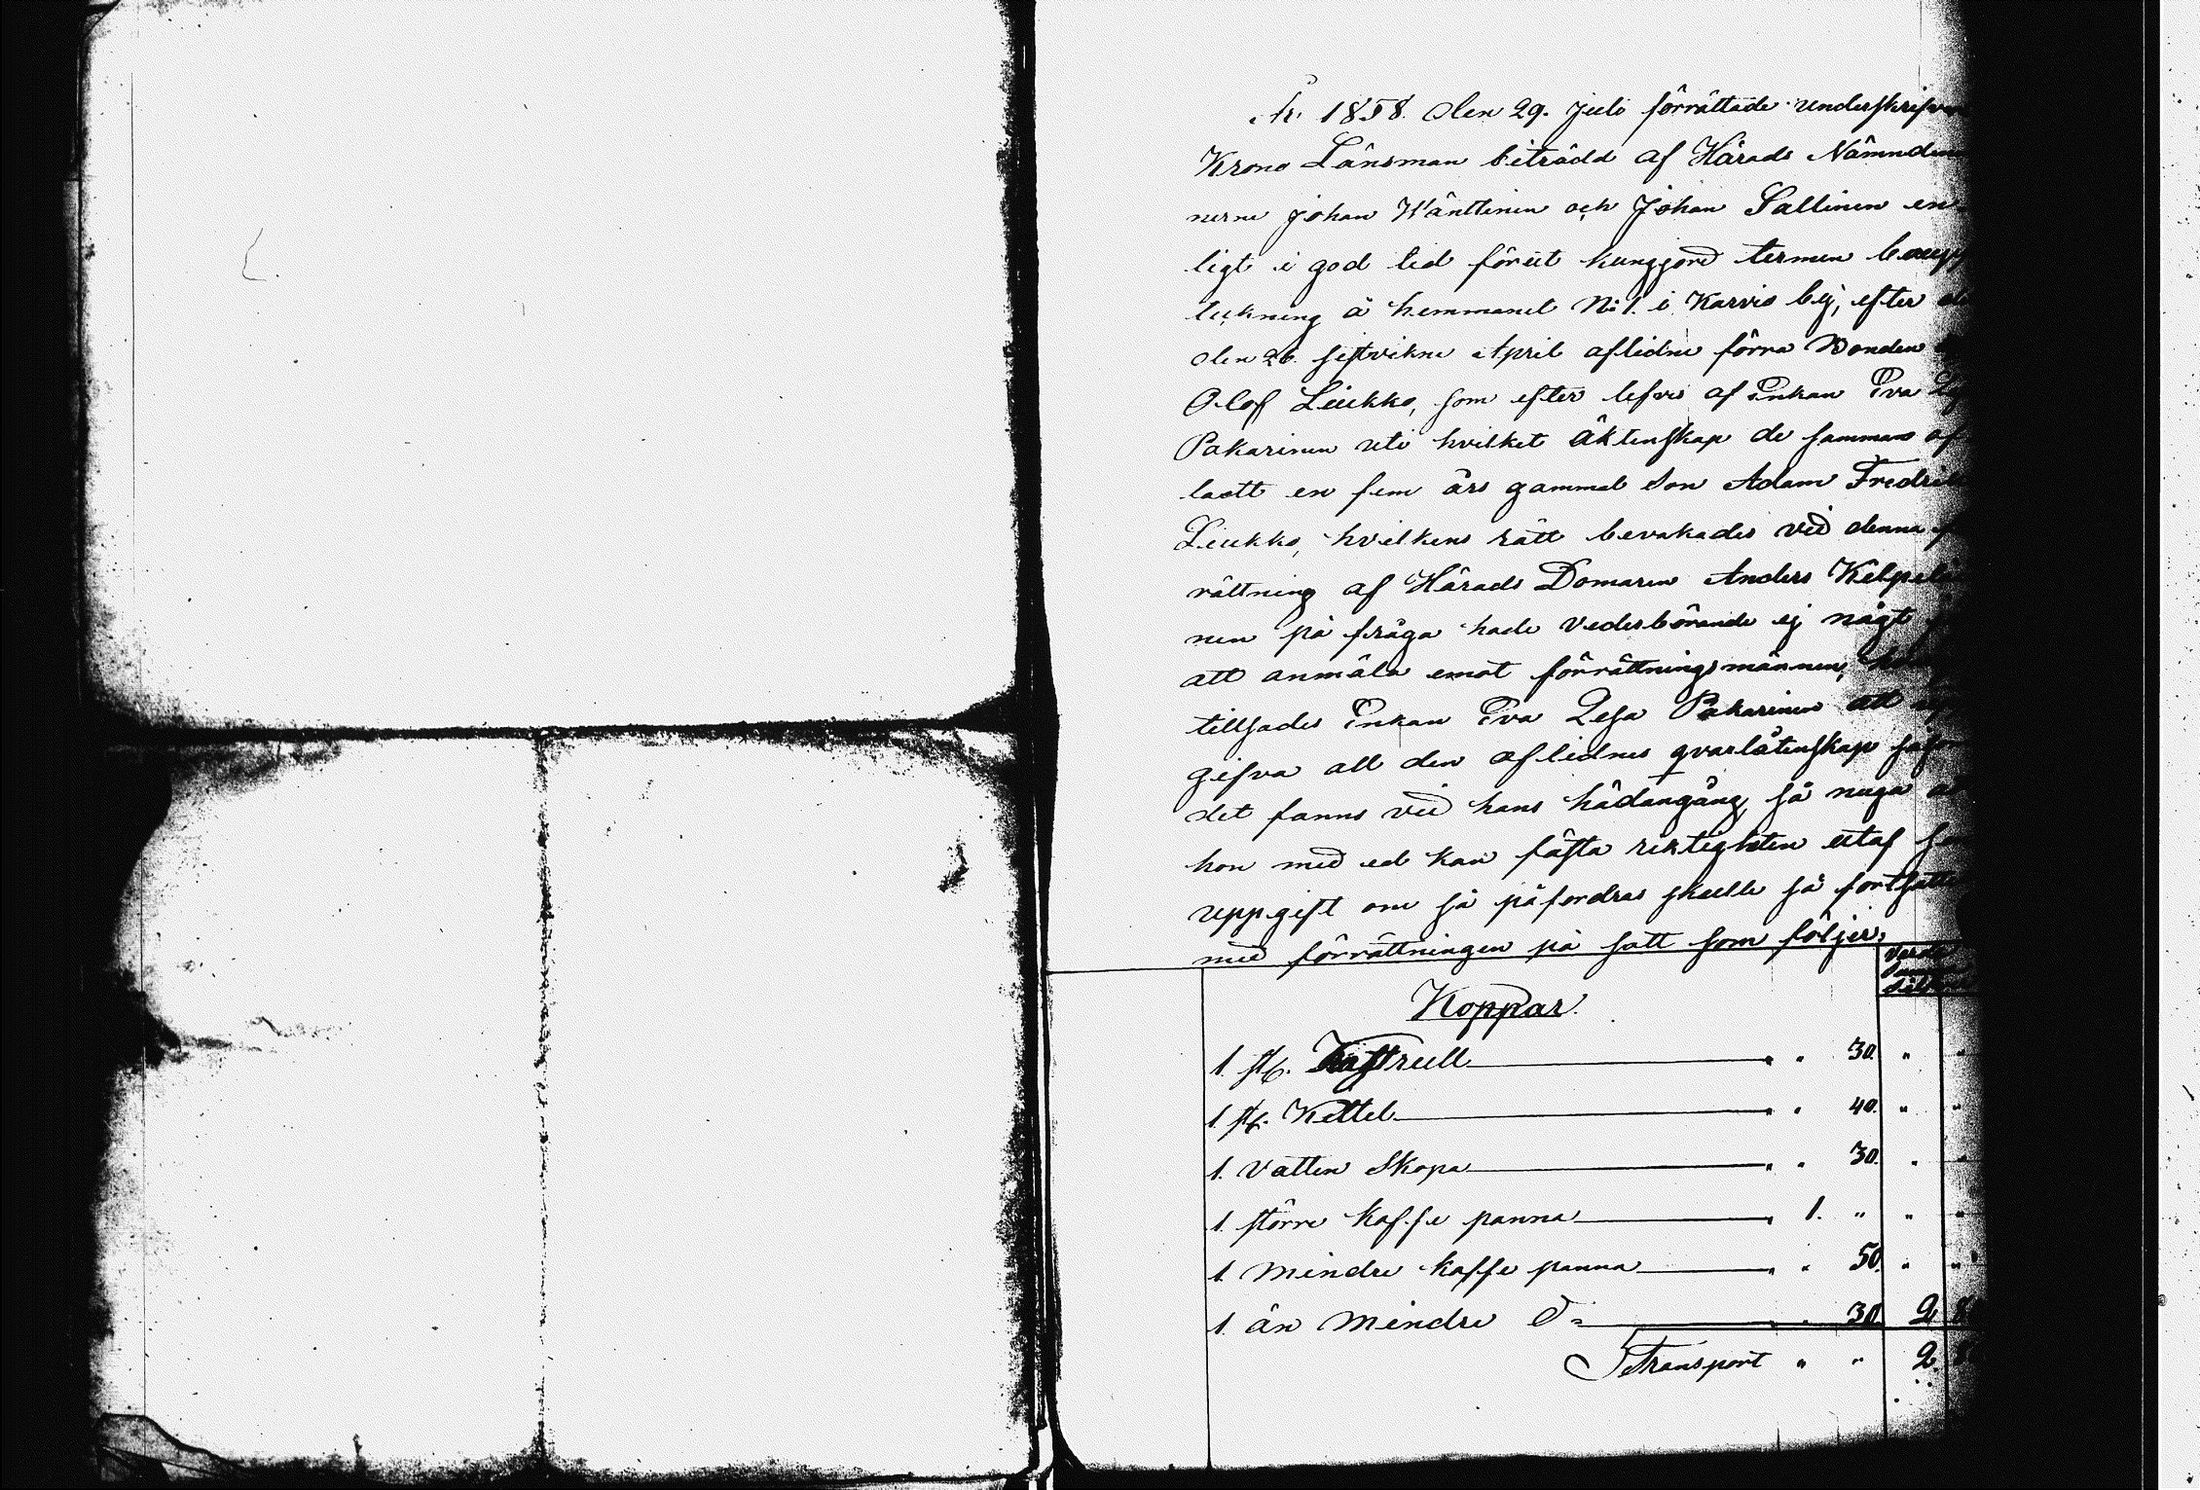 År 1858. den 29. Juli förrättade underskrifven
Krono Länsman biträdd af Härads Nämndem
nerne Johan Wänttinen och Johan Sallinen en
ligt i god tid förut kungjord termin bouupp
teckning å hemmanet No 1. i Karvio by, efter
den 26. sistvikne April aflidne förra Bonden
Olof Liukko, som efter lefvis af Enkan Eva
Pakarinen uti hvilket äktenskap de sammans af
laatt en fem års gammal Son Adam Fredrik
Liukko, hvilkens rätt bevakades vid denna
rättning af Härads Domaren Anders Kelpelä
nen på fråga hade Vederbörande ej någt
att anmäla emot förrättningsmännen,
tillsades Enkan Eva Lesa Pakarinen att
gifva all den aflidnes qvarlåtenskap såsom
det fanns vid hans hädangång, så nuga
hon med ed kan fästa riktigheten utaf
uppgift om så påfordras skulle så fortsatte
med förrättningen på satt som följer:
Koppar.
1. st. Kastrull " " 30. " "
1. st. Kettel " " 40. " "
1. Vatten Skopa " " 30. " "
1. större kaffe panna " 1. " " "
1. mindre kaffe panna " " 50. " "
1. än mindre do " " 30. 2. 80
Transport " " 2. 80